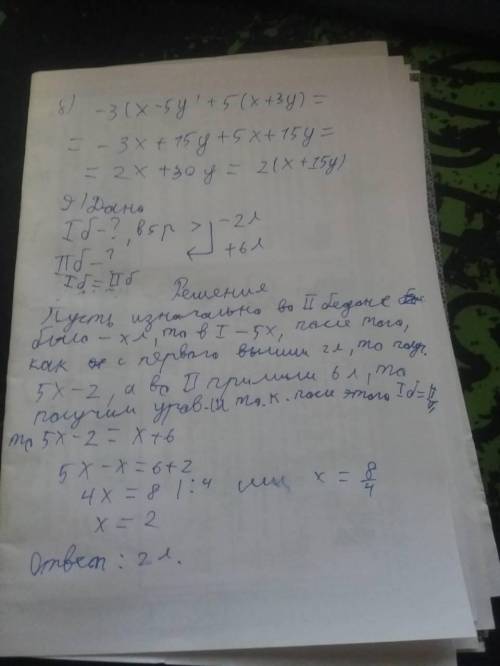 8) -3(x-5y) + 5(x+3y) =
= -3x + 15y + 5x + 15y =
= 2x + 30y = 2(x+15y)
9) Дано
I б - ?, в 5 р > -2 л
II б - ? +6 л
I б = II б
Решения
Пусть изначально во II бидоне
было - x л, то в I - 5x, после того,
как с первого вылили 2 л, то получ.
5x-2, а во II прилили 6 л, то
получим урав-я т.к. после этого I б = II б,
то 5x-2 = x+6
5x-x = 6+2
4x = 8 | :4 или x = 8/4
x = 2
Ответ: 2 л.